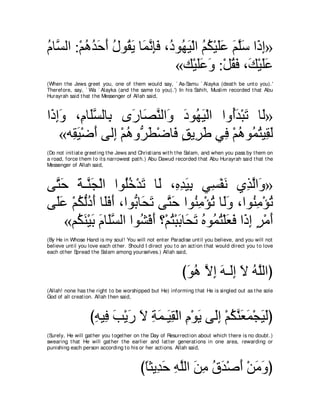 «إِذَا سَلَّمَ عَلَيْكُمُ الْيَهُودُ، فَإِنَّمَا يَقُولُ أَحَدُهُمْ: السَّامُ
عَلَيْكَ، فَقُلْ: وَعَلَيْك»
(When the Jews greet you, one of them would say, `As-Samu `Alayka (death be unto you).'
Therefore, say, `Wa `Alayka (and the same to you).') In his Sahih, Muslim recorded that Abu
Hurayrah said that the Messenger of Allah said,
«لَا تَبْدَأُوا الْيَهُودَ وَالنَّصَارَى بِالسَّلَامِ، وَإِذَا
لَقِيتُمُوهُمْ فِي طَرِيقٍ فَاضْطَرُّوهُمْ إِلَى أَضْيَقِه»
(Do not initiate greeting the Jews and Christians with the Salam, and when you pass by them on
a road, force them to its narrowest path.) Abu Dawud recorded that Abu Hurayrah said that the
Messenger of Allah said,
«وَالَّذِي نَفْسِي بِيَدِهِ، لَا تَدْخُلُوا الْجَنَّـةَ حَتَّى
تُؤْمِنُوا، وَلَا تُؤْمِنُوا حَتَّى تَحَابُّوا، أَفَلَا أَدُلُّكُمْ عَلَى
أَمْرٍ إِذَا فَعَلْتُمُوهُ تَحَابَبْتُمْ؟ أَفْشُوا السَّلَامَ بَيْنَكُم»
(By He in Whose Hand is my soul! You will not enter Paradise until you believe, and you will not
believe until you love each other. Should I direct you to an action that would direct you to love
each other Spread the Salam among yourselves.) Allah said,
(اللَّهُ لَا إِلَـهَ إِلاَّ هُوَ)
(Allah! none has the right to be worshipped but He) informing that He is singled out as the sole
God of all creation. Allah then said,
(لَيَجْمَعَنَّكُمْ إِلَى يَوْمِ الْقِيَـمَةِ لاَ رَيْبَ فِيهِ)
(Surely, He will gather you together on the Day of Resurrection about which there is no doubt.)
swearing that He will gather the earlier and latter generations in one area, rewarding or
punishing each person according to his or her actions. Allah said,
(وَمَنْ أَصْدَقُ مِنَ اللَّهِ حَدِيثاً)